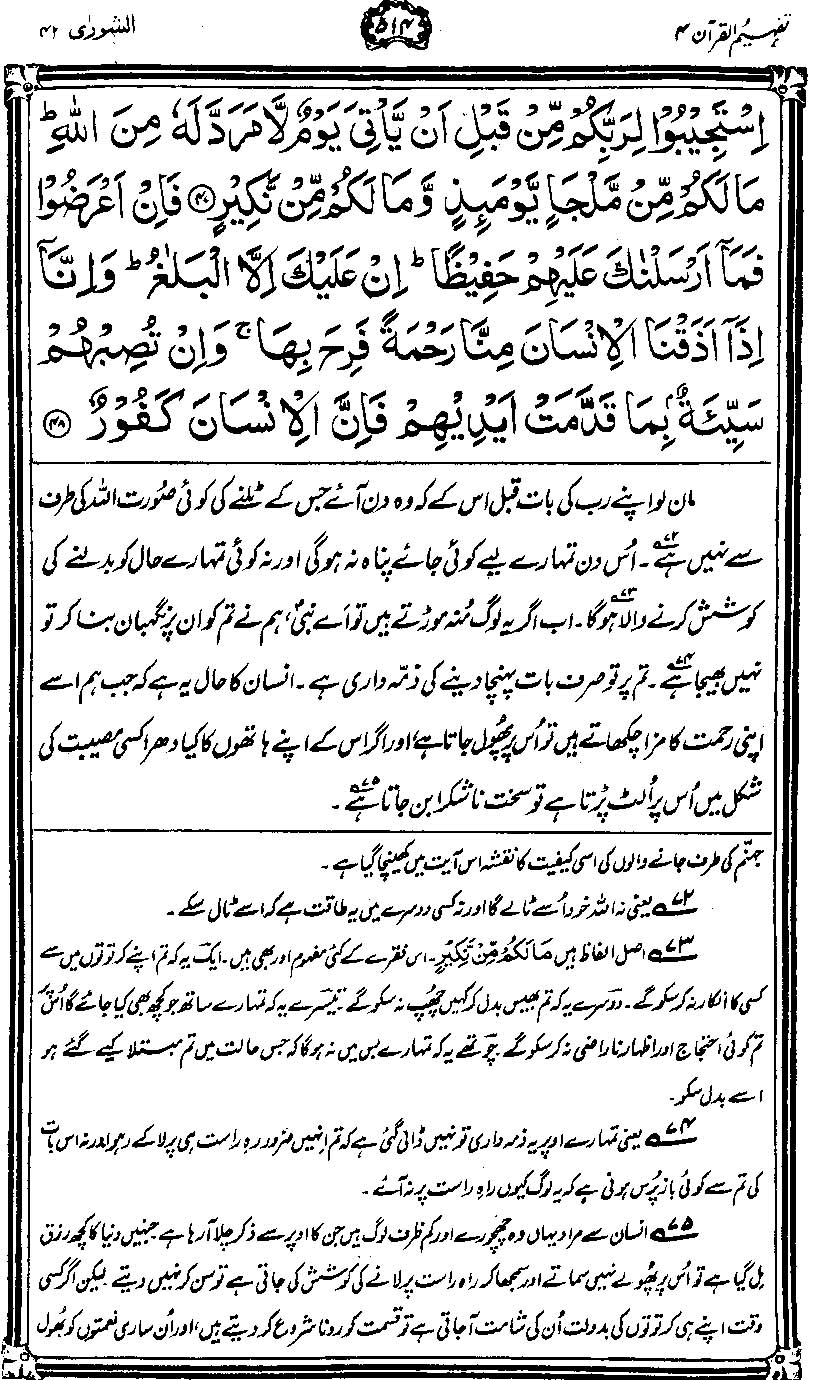 تفہیم القرآن ۴
۵۱۴
الشورٰی ۴۲
اِسْتَجِيْبُوْا لِرَبِّكُمْ مِّنْ قَبْلِ اَنْ يَّاْتِيَ يَوْمٌ لَّا مَرَدَّ لَهٗ مِنَ اللهِ ؕ
مَا لَكُمْ مِّنْ مَّلْجَاٍ يَّوْمَىِٕذٍ وَّمَا لَكُمْ مِّنْ نَّكِيْرٍ ۝۴۷ فَاِنْ اَعْرَضُوْا
فَمَاۤ اَرْسَلْنٰكَ عَلَيْهِمْ حَفِيْظًا ؕ اِنْ عَلَيْكَ اِلَّا الْبَلٰغُ ؕ وَاِنَّاۤ
اِذَاۤ اَذَقْنَا الْاِنْسَانَ مِنَّا رَحْمَةً فَرِحَ بِهَا ۚ وَاِنْ تُصِبْهُمْ
سَيِّئَةٌۢ بِمَا قَدَّمَتْ اَيْدِيْهِمْ فَاِنَّ الْاِنْسَانَ كَفُوْرٌ ۝۴۸
مان لو اپنے رب کی بات قبل اس کے کہ وہ دن آئے جس کے ٹلنے کی کوئی صُورت اللہ کی طرف
سے نہیں ہے۷۲۔ اُس دن تمہارے لیے کوئی جائے پناہ نہ ہوگی اور نہ کوئی تمہارے حال کو بدلنے کی
کوشش کرنے والا ہوگا۷۳۔ اب اگر یہ لوگ مُنہ موڑتے ہیں تو اَے نبیؐ، ہم نے تم کو ان پر نگہبان بنا کر تو
نہیں بھیجا ہے۷۴۔ تم پر تو صرف بات پہنچا دینے کی ذمّہ داری ہے۔ انسان کا حال یہ ہے کہ جب ہم اسے
اپنی رحمت کا مزا چکھاتے ہیں تو اُس پر پھُول جاتا ہے، اور اگر اس کے اپنے ہاتھوں کا کیا دھرا کسی مصیبت کی
شکل میں اُس پر اُلٹ پڑتا ہے تو سخت ناشکرا بن جاتا ہے۷۵۔
جہنّم کی طرف جانے والوں کی اسی کیفیت کا نقشہ اس آیت میں کھینچا گیا ہے۔
۷۲ یعنی نہ اللہ خود اُسے ٹالے گا اور نہ کسی دوسرے میں یہ طاقت ہے کہ اسے ٹال سکے۔
۷۳ اصل الفاظ ہیں مَا لَكُمْ مِّنْ نَّكِيْرٍ۔ اس فقرے کے کئی مفہوم اور بھی ہیں۔ ایک یہ کہ تم اپنے کرتوتوں میں سے
کسی کا انکار نہ کر سکو گے۔ دوسرے یہ کہ تم بھیس بدل کر کہیں چھُپ نہ سکو گے۔ تیسرے یہ کہ تمہارے ساتھ جو کچھ بھی کیا جائے گا اُس پر
تم کوئی احتجاج اور اظہار ناراضی نہ کر سکو گے۔ چوتھے یہ کہ تمہارے بس میں نہ ہوگا کہ جس حالت میں تم مبتلا کیے گئے ہو
اسے بدل سکو۔
۷۴ یعنی تمہارے اوپر یہ ذمہ داری تو نہیں ڈالی گئی ہے کہ تم انہیں ضرور راہِ راست ہی پر لا کے رہو اور نہ اس بات
کی تم سے کوئی باز پُرس ہونی ہے کہ یہ لوگ کیوں راہِ راست پر نہ آئے۔
۷۵ انسان سے مراد یہاں وہ چھچورے اور کم ظرف لوگ ہیں جن کا اوپر سے ذکر چلا آرہا ہے جنہیں دنیا کا کچھ رزق
مل گیا ہے تو اُس پر پھُولے نہیں سماتے اور سمجھا کر راہِ راست پر لانے کی کوشش کی جاتی ہے تو سُن کر نہیں دیتے۔ لیکن اگر کسی
وقت اپنے ہی کرتوتوں کی بدولت اُن کی شامت آجاتی ہے تو قسمت کو رونا شروع کر دیتے ہیں، اور اُن ساری نعمتوں کو بھُول